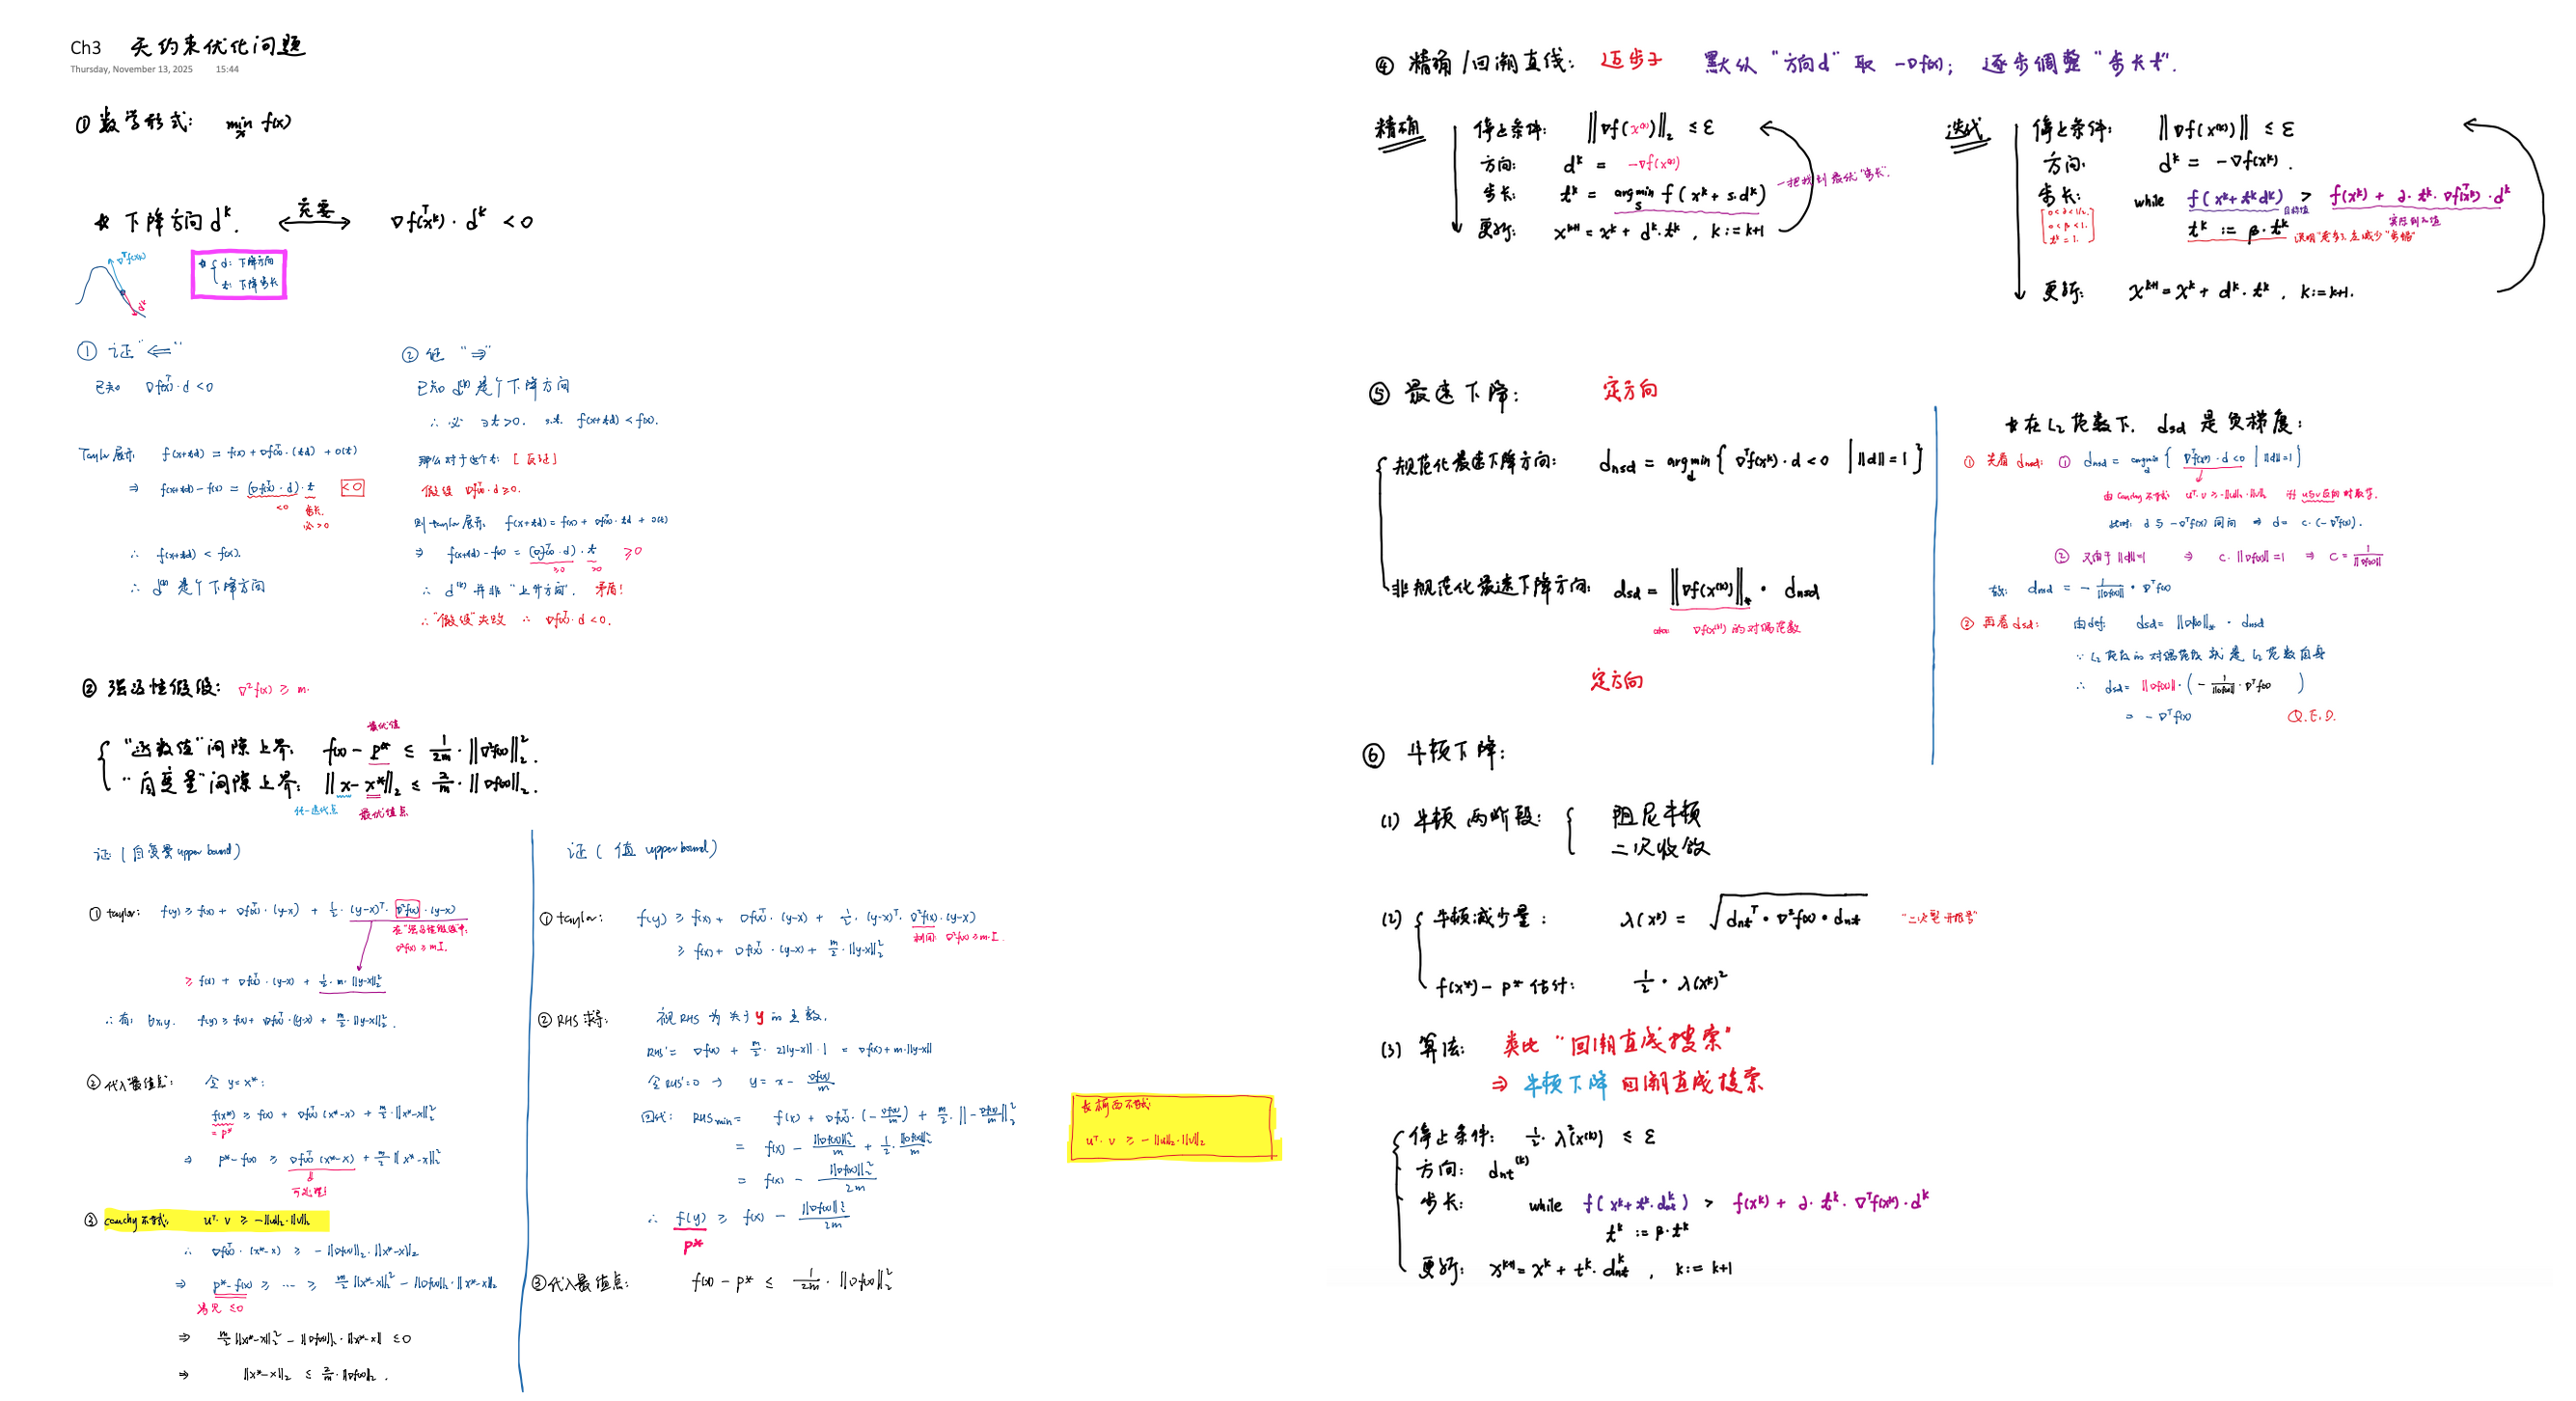 Ch3 无约束优化问题
Thursday, November 13, 2025 15:44
① 数学形式: min f(x)
x
* 下降方向 d^k. ⟷ 充要 ∇f(x^k)^T · d^k < 0
∇^T f(x^k)
d^k
* { d: 下降方向
t: 下降步长
① 证 "⇐"
已知 ∇f(x)^T · d < 0
Taylor 展开: f(x+td) = f(x) + ∇f(x)^T · (td) + o(t)
⇒ f(x+td) - f(x) = (∇f(x)^T · d) · t < 0
< 0 步长, 必 > 0
∴ f(x+td) < f(x).
∴ d^(k) 是个下降方向
② 证 "⇒"
已知 d^(k) 是个下降方向
∴ 必 ∃ t > 0, s.t. f(x+td) < f(x).
那么对于这个t: [反证]
假设 ∇f(x)^T · d ≥ 0.
则 taylor 展开: f(x+td) = f(x) + ∇f(x)^T · td + o(t)
⇒ f(x+td) - f(x) = (∇f(x)^T · d) · t ≥ 0
≥0 >0
∴ d^(k) 并非 "上升方向". 矛盾!
∴ "假设" 失败 ∴ ∇f(x)^T · d < 0.
② 强凸性假设: ∇²f(x) ≥ m.
最优值
{ "函数值" 间隙上界: f(x) - p* ≤ 1/2m · ||∇²f(x)||₂².
"自变量" 间隙上界: ||x - x*||₂ ≤ 2/m · ||∇f(x)||₂.
任一迭代点 最优值点
证 (自变量 upper bound)
① taylor: f(y) ≥ f(x) + ∇f(x)^T · (y-x) + 1/2 · (y-x)^T · ∇²f(x) · (y-x)
在 "强凸性假设" 中, ∇²f(x) ≥ mI.
≥ f(x) + ∇f(x)^T · (y-x) + 1/2 · m · ||y-x||₂²
∴ 有: ∀x,y. f(y) ≥ f(x) + ∇f(x)^T · (y-x) + m/2 · ||y-x||₂².
② 代入最值点: 令 y = x*:
f(x*) ≥ f(x) + ∇f(x)^T (x*-x) + m/2 · ||x*-x||₂²
= p*
⇒ p* - f(x) ≥ ∇f(x)^T (x*-x) + m/2 ||x*-x||₂²
可处理!
③ cauchy 不等式: u^T · v ≥ -||u||₂ · ||v||₂
∴ ∇f(x)^T · (x*-x) ≥ -||∇f(x)||₂ · ||x*-x||₂
⇒ p* - f(x) ≥ ... ≥ m/2 ||x*-x||₂² - ||∇f(x)||₂ · ||x*-x||₂
≤0
⇒ m/2 ||x*-x||₂² - ||∇f(x)||₂ · ||x*-x|| ≤ 0
⇒ ||x*-x||₂ ≤ 2/m · ||∇f(x)||₂.
证 (值 upper bound)
① taylor: f(y) ≥ f(x) + ∇f(x)^T · (y-x) + 1/2 · (y-x)^T · ∇²f(x) · (y-x)
利用: ∇²f(x) ≥ m·I.
≥ f(x) + ∇f(x)^T · (y-x) + m/2 · ||y-x||₂²
② RHS 求导: 视 RHS 为关于 y 的函数.
RHS' = ∇f(x) + m/2 · 2||y-x|| · 1 = ∇f(x) + m·||y-x||
令 RHS' = 0 → y = x - ∇f(x)/m
回代: RHS min = f(x) + ∇f(x)^T · (-∇f(x)/m) + m/2 · ||-∇f(x)/m||₂²
= f(x) - ||∇f(x)||₂²/m + 1/2 · ||∇f(x)||₂²/m
= f(x) - ||∇f(x)||₂²/2m
∴ f(y) ≥ f(x) - ||∇f(x)||₂²/2m
p*
③ 代入最值点: f(x) - p* ≤ 1/2m · ||∇f(x)||₂²
柯西不等式:
u^T · v ≥ -||u||₂ · ||v||₂
④ 精确/回溯直线: 迈步子 默认 "方向d" 取 -∇f(x); 逐步调整 "步长t".
精确
停止条件: ||∇f(x^(k))||₂ ≤ ε
方向: d^k = -∇f(x^(k))
步长: t^k = argmin f(x^k + s·d^k) 一把找到最优 "步长".
s
更新: x^(k+1) = x^k + d^k · t^k, k := k+1
迭代
停止条件: ||∇f(x^(k))|| ≤ ε
方向: d^k = -∇f(x^k).
步长: while f(x^k + t^k d^k) > f(x^k) + ∂ · t^k · ∇f(x^k)^T · d^k
目标值 实际引入值
[0<∂<1/2. 0<β<1. t^k=1.]
t^k := β · t^k 说明 减少 "步幅"
更新: x^(k+1) = x^k + d^k · t^k, k := k+1.
⑤ 最速下降: 定方向
{ 规范化最速下降方向: dnsd = argmin { ∇^T f(x^k) · d < 0 | ||d|| = 1 }
d
非规范化最速下降方向: dsd = ||∇f(x^(k))||* · dnsd
∇f(x^(k)) 的对偶范数
定方向
* 在 L₂ 范数下, dsd 是负梯度:
① 先看 dnsd: ① dnsd = argmin { ∇^T f(x^k) · d < 0 | ||d|| = 1 }
d
由 Cauchy 不等式: u^T · v ≥ -||u||₂ · ||v||₂ 当 u与v反向时取等.
此时: d 与 -∇^T f(x) 同向 ⇒ d = c · (-∇^T f(x)).
② 又由于 ||d|| = 1 ⇒ c · ||∇f(x)|| = 1 ⇒ c = 1/||∇f(x)||
故: dnsd = -1/||∇f(x)|| · ∇^T f(x)
② 再看 dsd: 由def: dsd = ||∇f(x)||* · dnsd
∵ L₂ 范数的对偶范数就是 L₂ 范数自身
∴ dsd = ||∇f(x)|| · (-1/||∇f(x)|| · ∇^T f(x))
= -∇^T f(x) Q.E.D.
⑥ 牛顿下降:
(1) 牛顿两阶段: { 阻尼牛顿
二次收敛
(2) { 牛顿减少量: λ(x^k) = √(dnt^T · ∇²f(x) · dnt) "二次型开根号"
f(x^k) - p* 估计: 1/2 · λ(x^k)²
(3) 算法: 类比 "回溯直线搜索"
⇒ 牛顿下降 回溯直线搜索
停止条件: 1/2 · λ²(x^(k)) ≤ ε
方向: dnt^(k)
步长: while f(x^k + t^k · dnt^k) > f(x^k) + ∂ · t^k · ∇^T f(x^k) · d^k
t^k := β · t^k
更新: x^(k+1) = x^k + t^k · dnt^k, k := k+1